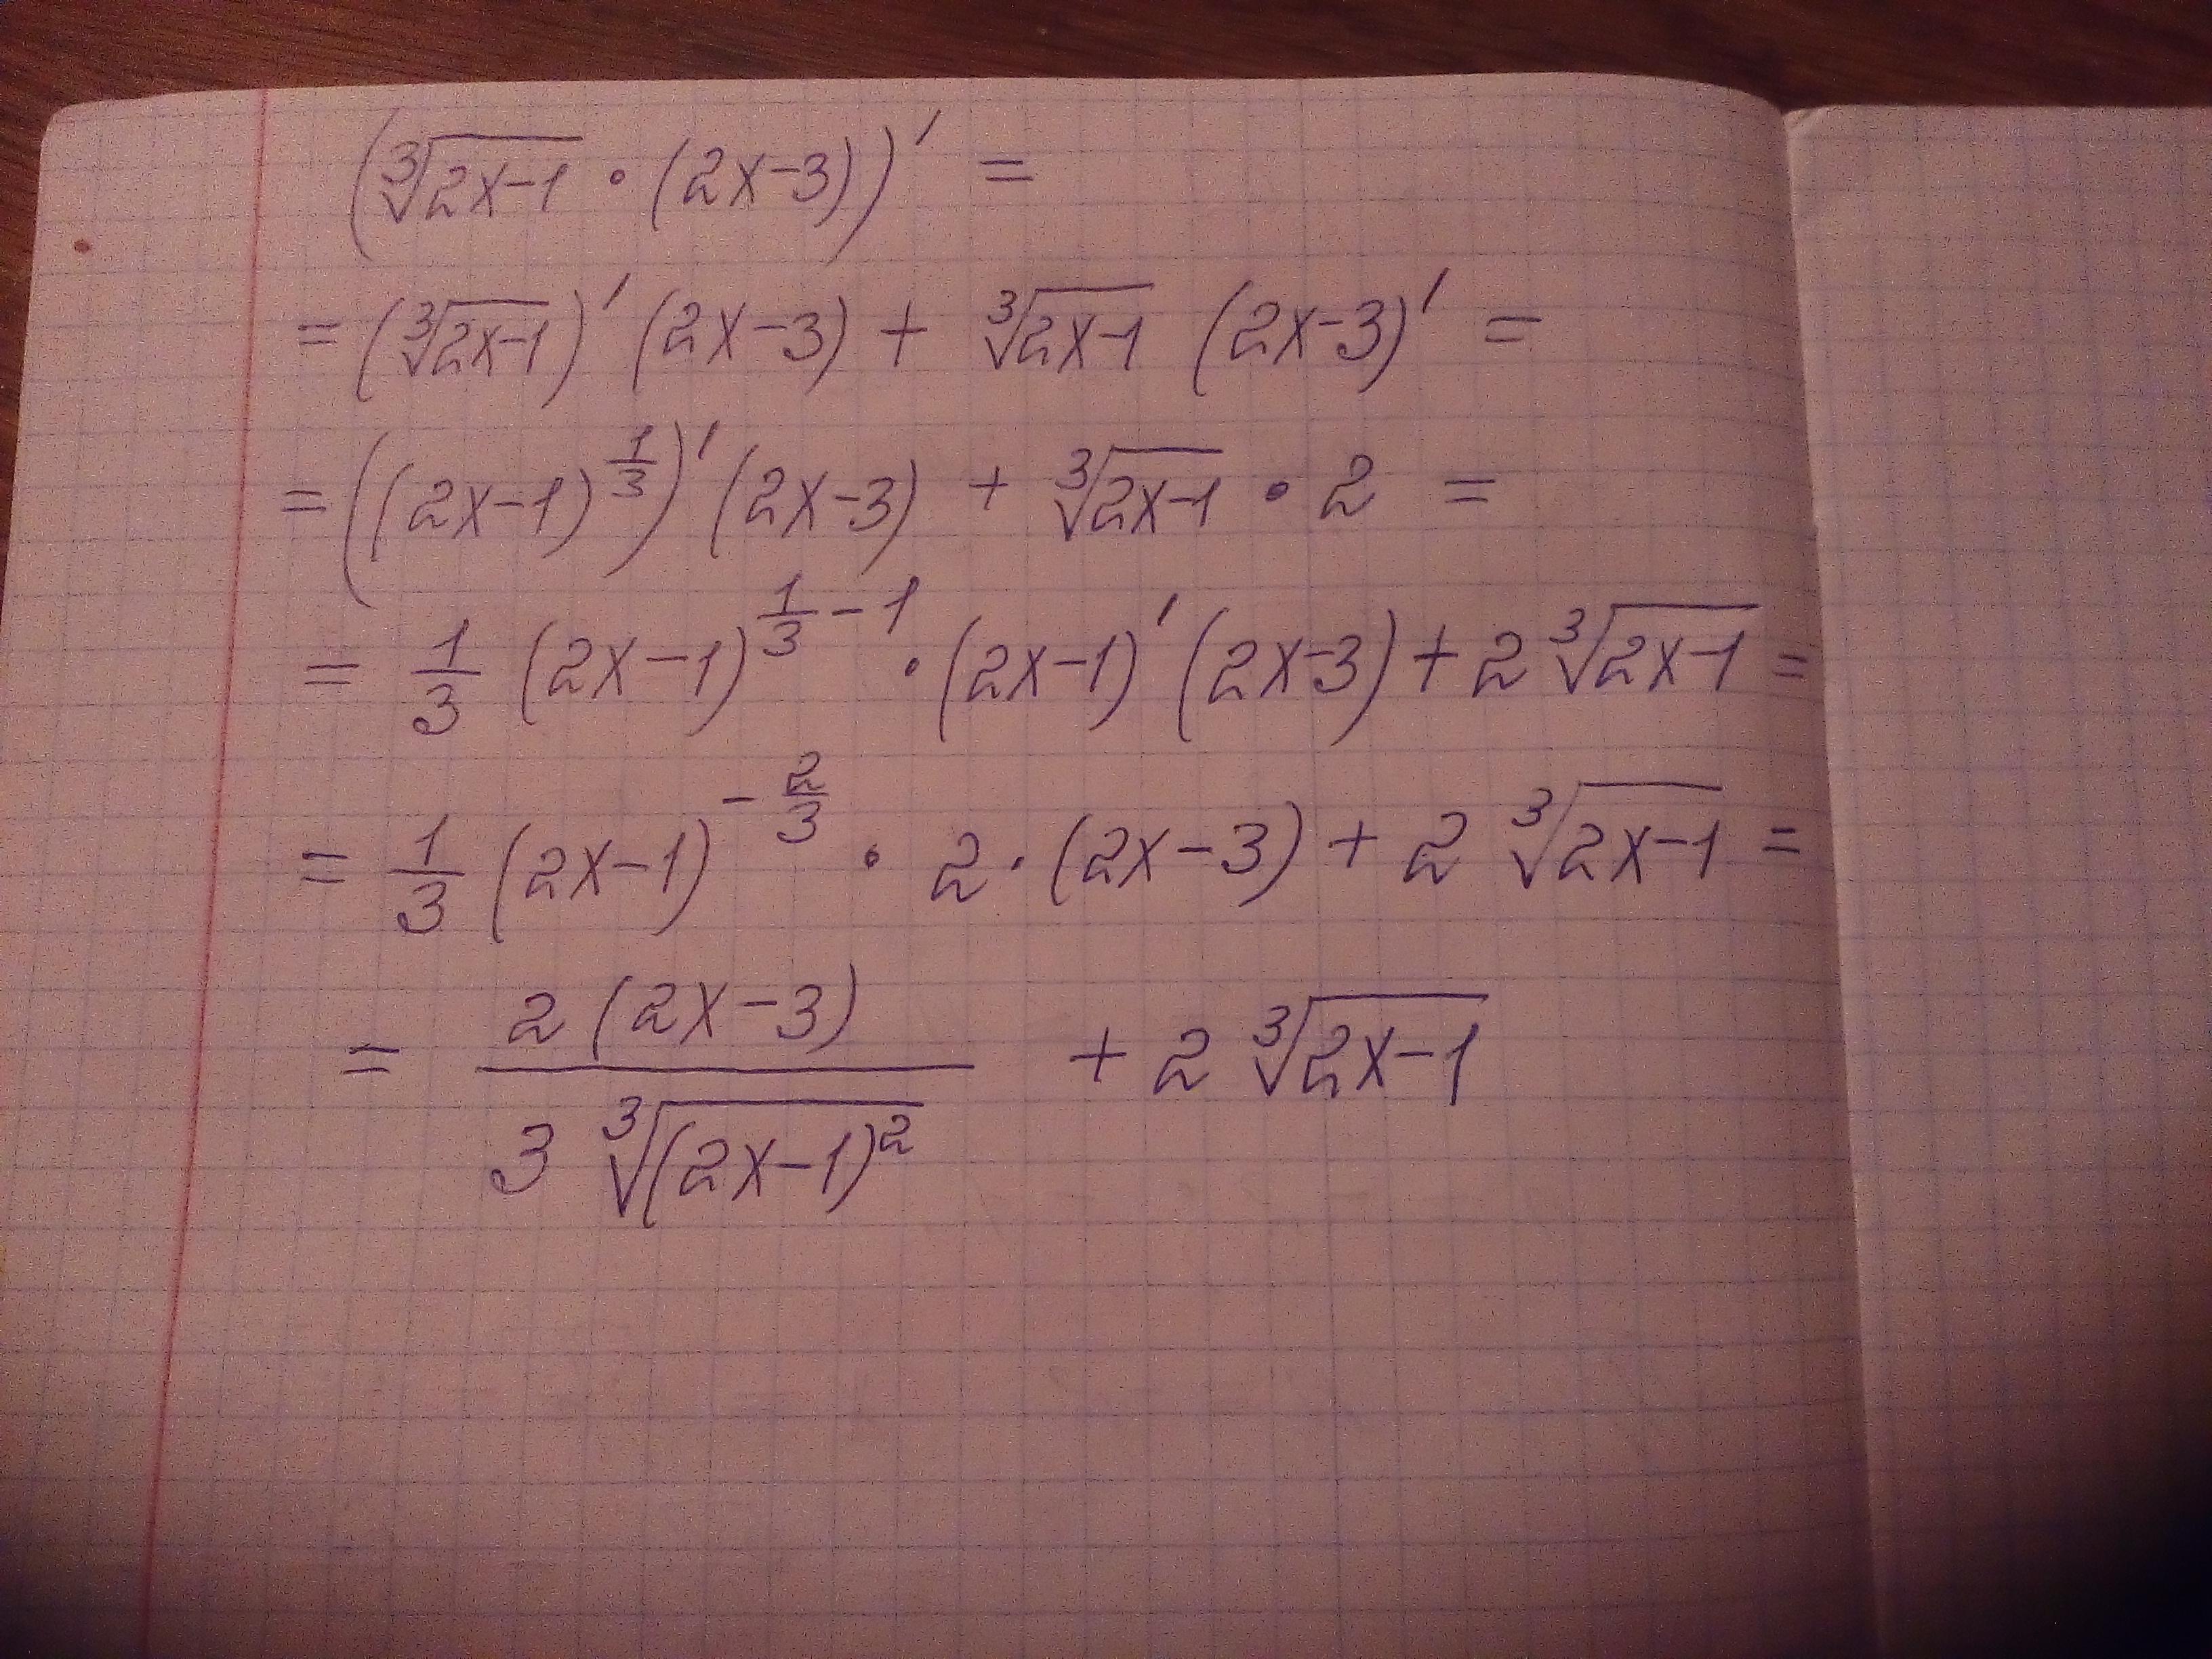 (∛(2x-1) · (2x-3))' =
= (∛(2x-1))' (2x-3) + ∛(2x-1) (2x-3)' =
= ((2x-1)^(1/3))' (2x-3) + ∛(2x-1) · 2 =
= 1/3 (2x-1)^(1/3 - 1) · (2x-1)' (2x-3) + 2 ∛(2x-1) =
= 1/3 (2x-1)^(-2/3) · 2 · (2x-3) + 2 ∛(2x-1) =
= 2(2x-3) / (3 ∛((2x-1)²)) + 2 ∛(2x-1)